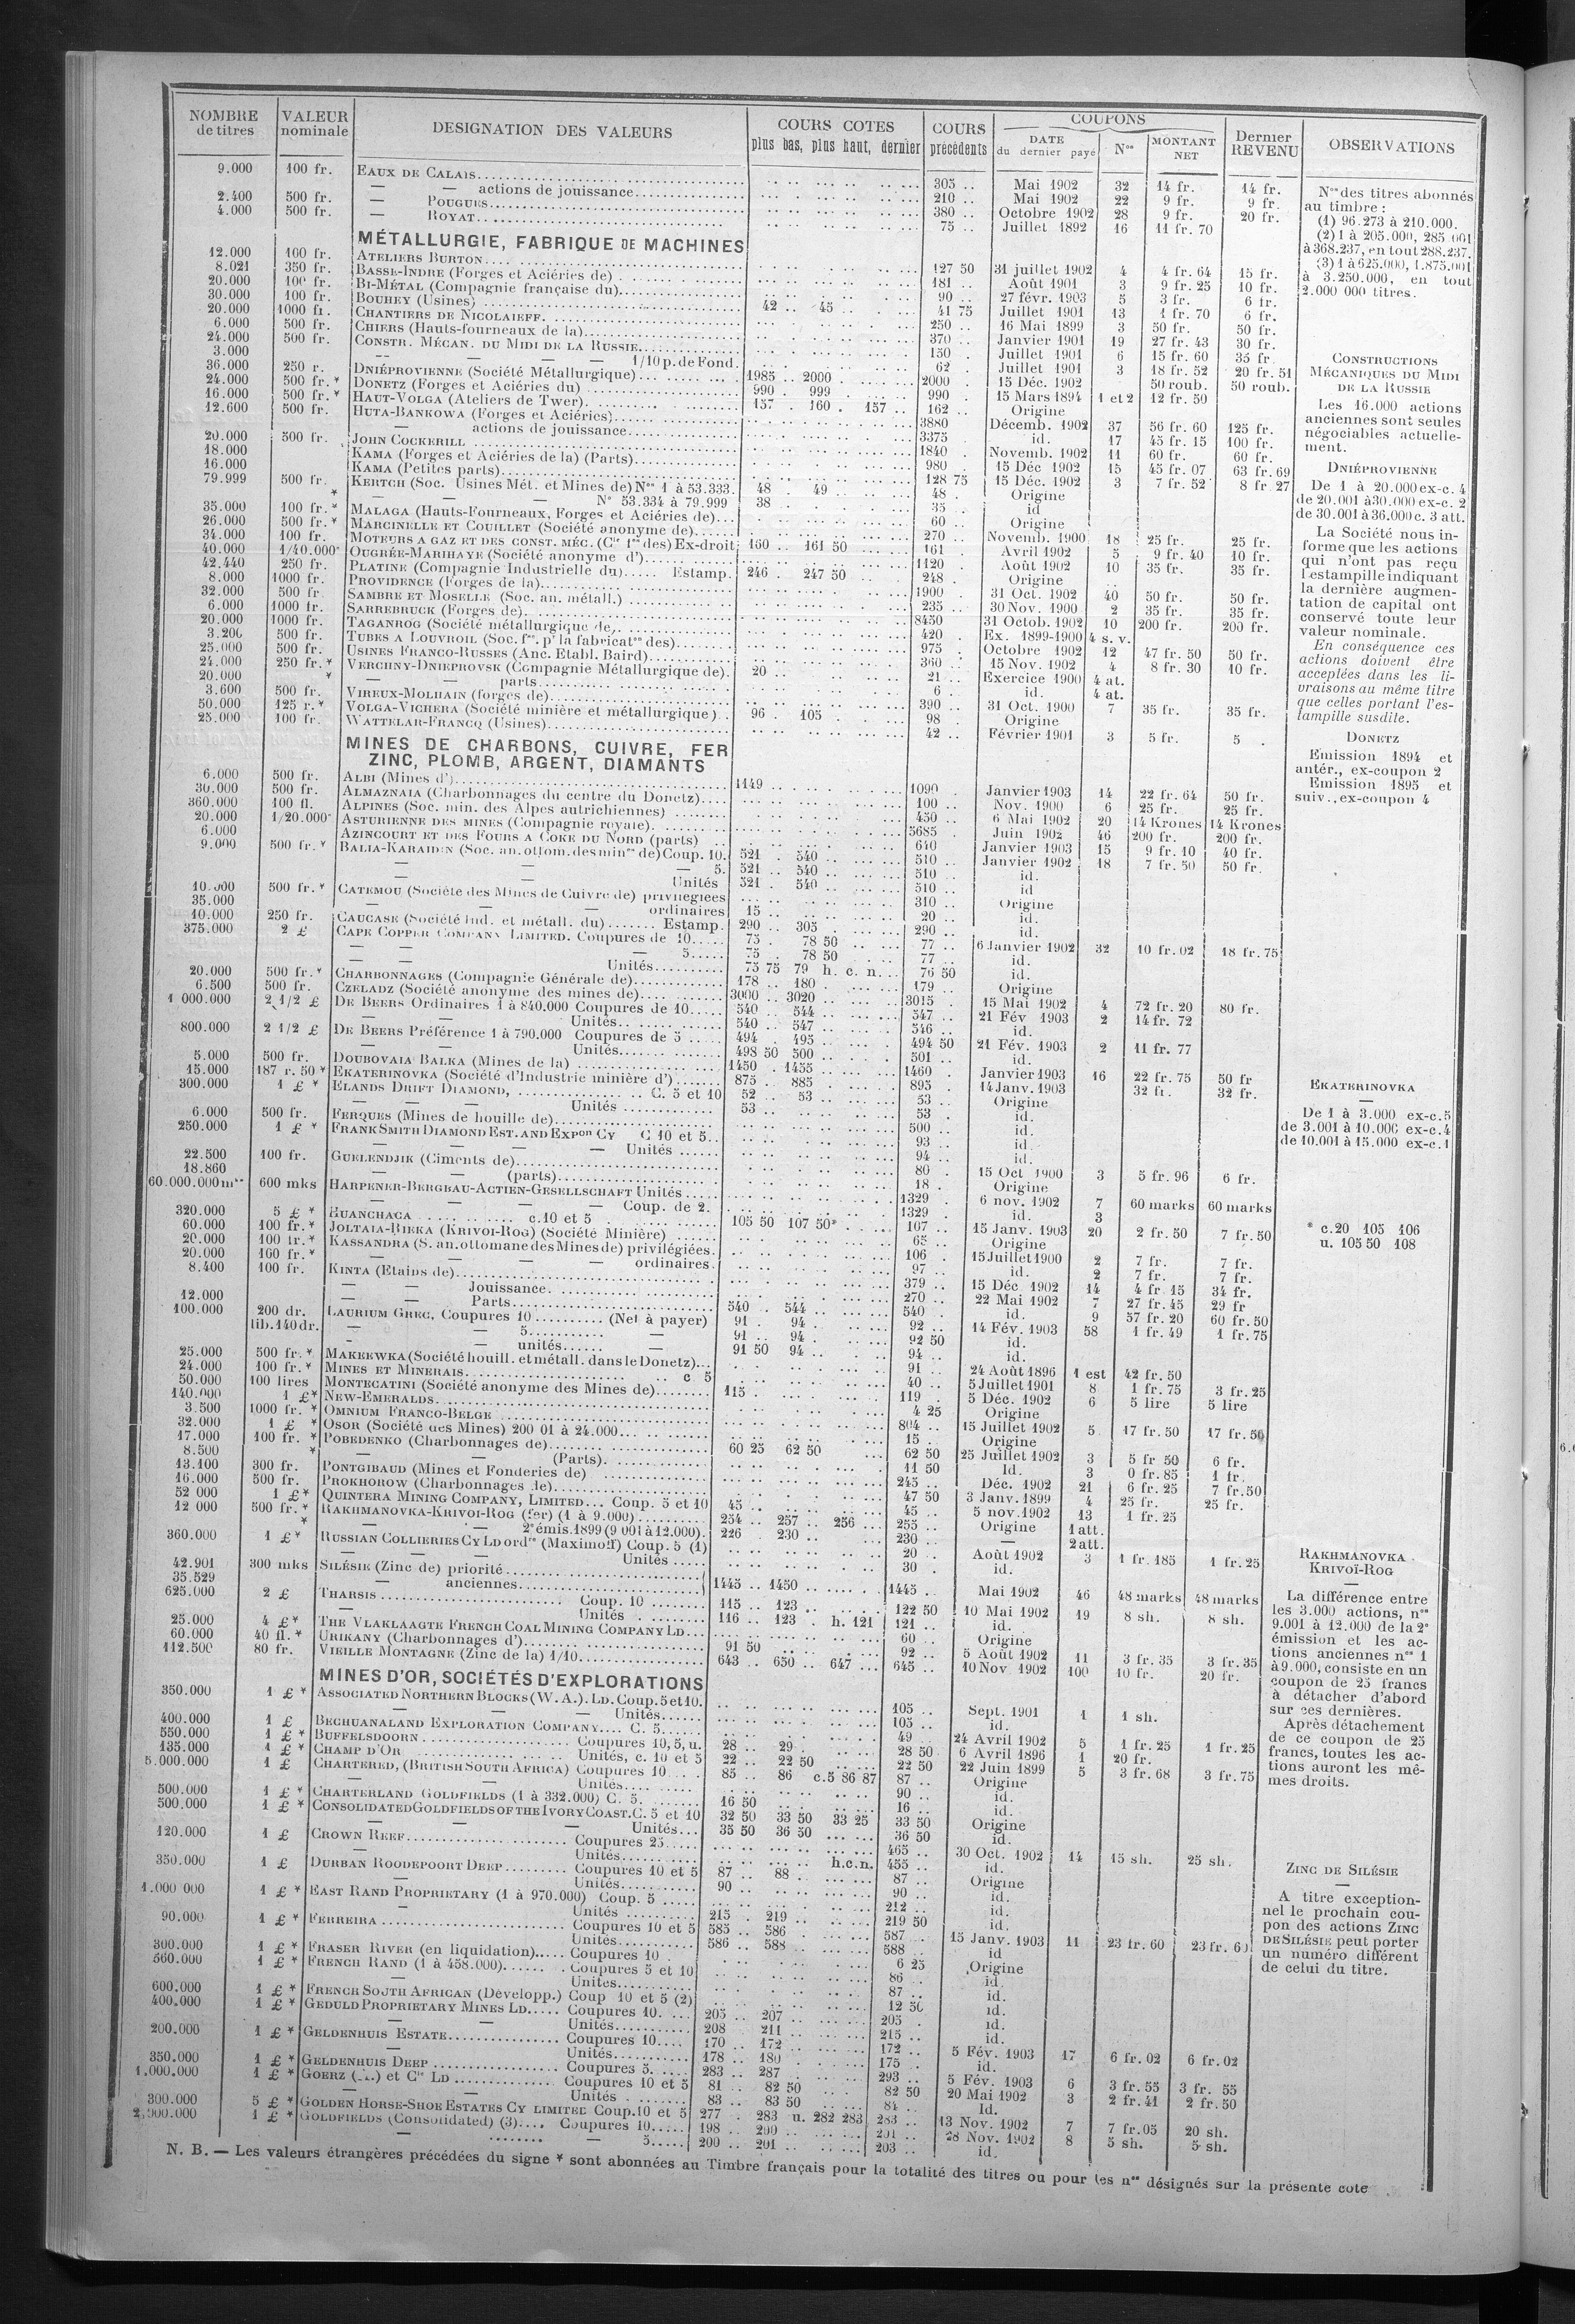 NOMBRE de titres VALEUR nominale DESIGNATION DES VALEURS COURS COTES plus bas, plus haut, dernier COURS précédents COUPONS DATE du dernier payé Nos MONTANT NET Dernier REVENU OBSERVATIONS
9.000 100 fr. EAUX DE CALAIS 305 .. Mai 1902 32 14 fr. 14 fr.
— — actions de jouissance 210 .. Mai 1902 22 9 fr. 9 fr.
2.400 500 fr. — POUGUES 380 .. Octobre 1902 28 9 fr. 20 fr.
4.000 500 fr. — ROYAT 75 .. Juillet 1892 16 11 fr. 70
MÉTALLURGIE, FABRIQUE DE MACHINES
12.000 100 fr. ATELIERS BURTON 127 50 31 juillet 1902 4 4 fr. 64 15 fr.
8.021 350 fr. BASSE-INDRE (Forges et Aciéries de) 181 .. Août 1901 3 9 fr. 25 10 fr.
20.000 100 fr. BI-MÉTAL (Compagnie française du) 90 .. 27 févr. 1903 5 3 fr. 6 fr.
30.000 100 fr. BOUHEY (Usines) 42 .. 45 41 75 Juillet 1901 13 1 fr. 70 6 fr.
20.000 1000 fr. CHANTIERS DE NICOLAIEFF 250 .. 16 Mai 1899 3 50 fr. 50 fr.
6.000 500 fr. CHIERS (Hauts-fourneaux de la) 370 .. Janvier 1901 19 27 fr. 43 30 fr.
24.000 500 fr. CONSTR. MÉCAN. DU MIDI DE LA RUSSIE 150 . Juillet 1901 6 15 fr. 60 35 fr.
3.000 — — — 1/10 p. de Fond. 62 . Juillet 1901 3 18 fr. 52 20 fr. 51
36.000 250 r. DNIÉPROVIENNE (Société Métallurgique) 1985 .. 2000 2000 . 15 Déc. 1902 50 roub. 50 roub.
24.000 500 fr.* DONETZ (Forges et Aciéries du) 990 . 999 990 . 15 Mars 1894 1 et 2 12 fr. 50
16.000 500 fr.* HAUT-VOLGA (Ateliers de Twer) 157 . 160 . 157 .. 162 .. Origine
12.600 500 fr. HUTA-BANKOWA (Forges et Aciéries) 3880 Décemb. 1902 37 56 fr. 60 125 fr.
— actions de jouissance 3375 id. 17 45 fr. 15 100 fr.
20.000 500 fr. JOHN COCKERILL 1840 . Novemb. 1902 11 60 fr. 60 fr.
18.000 KAMA (Forges et Aciéries de la) (Parts) 980 . 15 Déc 1902 15 45 fr. 07 63 fr. 69
16.000 KAMA (Petites parts) 128 75 15 Déc. 1902 3 7 fr. 52 8 fr 27
79.999 500 fr. KERTCH (Soc. Usines Mét. et Mines de) Nos 1 à 53.333. 48 . 49 48 . Origine
* — — — N° 53.334 à 79.999 38 . 35 .. id
35.000 100 fr.* MALAGA (Hauts-Fourneaux, Forges et Aciéries de) 60 .. Origine
26.000 500 fr.* MARCINELLE ET COUILLET (Société anonyme de) 270 .. Novemb. 1900 18 25 fr. 25 fr.
34.000 100 fr. MOTEURS A GAZ ET DES CONST. MÉC. (Cie fse des) Ex-droit 160 .. 161 50 161 . Avril 1902 5 9 fr. 40 10 fr.
40.000 1/40.000e OUGRÉE-MARIHAYE (Société anonyme d') 1120 . Août 1902 10 35 fr. 35 fr.
42.440 250 fr. PLATINE (Compagnie Industrielle du) Estamp. 246 . 247 50 248 . Origine
8.000 1000 fr. PROVIDENCE (Forges de la) 1900 . 31 Oct. 1902 40 50 fr. 50 fr.
32.000 500 fr. SAMBRE ET MOSELLE (Soc. an. métall.) 235 .. 30 Nov. 1900 2 35 fr. 35 fr.
6.000 1000 fr. SARREBRUCK (Forges de) 8450 31 Octob. 1902 10 200 fr. 200 fr.
20.000 1000 fr. TAGANROG (Société métallurgique de) 420 . Ex. 1899-1900 4 s. v.
3.200 500 fr. TUBES A LOUVROIL (Soc. fse p' la fabricaton des) 975 . Octobre 1902 12 47 fr. 50 50 fr.
25.000 500 fr. USINES FRANCO-RUSSES (Anc. Etabl. Baird) 360 .. 15 Nov. 1902 4 8 fr. 30 10 fr.
24.000 250 fr.* VERCHNY-DNIEPROVSK (Compagnie Métallurgique de) 20 .. 21 .. Exercice 1900 4 at.
20.000 * — — parts 6 . id. 4 at.
3.600 500 fr. VIREUX-MOLHAIN (forges de) 390 .. 31 Oct. 1900 7 35 fr. 35 fr.
50.000 125 r.* VOLGA-VICHERA (Société minière et métallurgique) 96 . 105 98 . Origine
25.000 100 fr. WATTELAR-FRANCQ (Usines) 42 .. Février 1901 3 5 fr. 5 .
MINES DE CHARBONS, CUIVRE, FER
ZINC, PLOMB, ARGENT, DIAMANTS
6.000 500 fr. ALBI (Mines d') 1149 .. 1090 . Janvier 1903 14 22 fr. 64 50 fr.
30.000 500 fr. ALMAZNAIA (Charbonnages du centre du Donetz) 100 .. Nov. 1900 6 25 fr. 25 fr.
360.000 100 fl. ALPINES (Soc. min. des Alpes autrichiennes) 450 .. 6 Mai 1902 20 14 Krones 14 Krones
20.000 1/20.000e ASTURIENNE DES MINES (Compagnie royale) 5685 . Juin 1902 46 200 fr. 200 fr.
6.000 AZINCOURT ET DES FOURS A COKE DU NORD (parts) 640 Janvier 1903 15 9 fr. 10 40 fr.
9.000 500 fr.* BALIA-KARAIDIN (Soc. an. ottom. des mines de) Coup. 10. 521 . 540 510 .. Janvier 1902 18 7 fr. 50 50 fr.
— — 5. 521 .. 540 510 .. id.
— — Unités 521 . 540 510 .. id
10.000 500 fr.* CATEMOU (Société des Mines de Cuivre de) privilégiées 310 .. Origine
35.000 — — ordinaires 15 .. 20 .. id.
10.000 250 fr. CAUCASE (Société Ind. et métall. du) Estamp. 290 .. 305 290 .. id.
375.000 2 £ CAPE COPPER COMPANY LIMITED. Coupures de 10 75 . 78 50 77 .. 6 Janvier 1902 32 10 fr. 02 18 fr. 75
— — 5 75 . 78 50 77 .. id.
— — Unités 75 75 79 h. c. n. 76 50 id.
20.000 500 fr.* CHARBONNAGES (Compagnie Générale de) 178 .. 180 179 .. Origine
6.500 500 fr. CZELADZ (Société anonyme des mines de) 3000 .. 3020 3015 . 15 Mai 1902 4 72 fr. 20 80 fr.
1 000.000 2 1/2 £ DE BEERS Ordinaires 1 à 840.000 Coupures de 10 540 .. 544 547 .. 21 Fév 1903 2 14 fr. 72
— — Unités 540 .. 547 546 .. id.
800.000 2 1/2 £ DE BEERS Préférence 1 à 790.000 Coupures de 5 494 . 495 494 50 21 Fév. 1903 2 11 fr. 77
— — Unités 498 50 500 501 .. id.
5.000 500 fr. DOUBOVAIA BALKA (Mines de la) 1450 .. 1455 1460 . Janvier 1903 16 22 fr. 75 50 fr
15.000 187 r. 50* EKATERINOVKA (Société d'Industrie minière d') 875 . 885 895 . 14 Janv. 1903 32 fr. 32 fr.
300.000 1 £ * ELANDS DRIFT DIAMOND, C. 5 et 10 52 .. 53 53 .. Origine
— — Unités 53 .. 53 . id.
6.000 500 fr. FERQUES (Mines de houille de) 500 .. id.
250.000 1 £ * FRANK SMITH DIAMOND EST. AND EXPon CY C 10 et 5. 93 .. id.
— — Unités 94 .. id.
22.500 100 fr. GUELENDJIK (Ciments de) 80 . 15 Oct 1900 3 5 fr. 96 6 fr.
18.860 — (parts) 18 . Origine
60.000.000 mks 600 mks HARPENER-BERGBAU-ACTIEN-GESELLSCHAFT Unités 1329 . 6 nov. 1902 7 60 marks 60 marks
— — Coup. de 2. 1329 . id. 3
320.000 5 £ * HUANCHACA c. 10 et 5 105 50 107 50* 107 .. 15 Janv. 1903 20 2 fr. 50 7 fr. 50
60.000 100 fr.* JOLTAIA-RIEKA (KRIVOI-ROG) (Société Minière) 65 .. Origine
20.000 100 fr.* KASSANDRA (S. an. ottomane des Mines de) privilégiées. 106 . 15 Juillet 1900 2 7 fr. 7 fr.
20.000 160 fr.* — — ordinaires. 97 .. id. 2 7 fr. 7 fr.
8.400 100 fr. KINTA (Etains de) 379 .. 15 Déc 1902 14 4 fr 15 34 fr.
— — Jouissance. 270 .. 22 Mai 1902 7 27 fr. 45 29 fr
12.000 — — Parts 540 . 544 540 .. id. 9 57 fr. 20 60 fr. 50
100.000 200 dr. LAURIUM GREC, Coupures 10 (Net à payer) 91 . 94 92 .. 14 Fév. 1903 58 1 fr. 49 1 fr. 75
lib. 140 dr. — — 5 — 91 .. 94 92 50 id.
— — unités — 91 50 94 94 .. id.
25.000 500 fr.* MAKEEWKA (Société houill. et métall. dans le Donetz) 91 . 24 Août 1896 1 est 42 fr. 50
24.000 100 fr.* MINES ET MINERAIS c 5 40 .. 5 Juillet 1901 8 1 fr. 75 3 fr. 25
50.000 100 lires MONTECATINI (Société anonyme des Mines de) 115 . 119 . 5 Déc. 1902 6 5 lire 5 lire
140.000 1 £* NEW-EMERALDS 4 25 Origine
3.500 1000 fr. * OMNIUM FRANCO-BELGE 804 .. 15 Juillet 1902 5 17 fr. 50 17 fr. 50
32.000 1 £ * OSOR (Société des Mines) 200 01 à 24.000 15 . Origine
17.000 100 fr. * POBEDENKO (Charbonnages de) 60 25 62 50 62 50 25 Juillet 1902 3 5 fr 50 6 fr.
8.500 * — (Parts). 11 50 Id. 3 0 fr. 85 1 fr.
13.100 300 fr. PONTGIBAUD (Mines et Fonderies de) 245 .. Déc. 1902 21 6 fr. 25 7 fr. 50
16.000 500 fr. PROKHOROW (Charbonnages de) 47 50 3 Janv. 1899 4 25 fr. 25 fr.
52 000 1 £* QUINTERA MINING COMPANY, LIMITED Coup. 5 et 10 45 .. 45 .. 5 nov. 1902 13 1 fr. 25
12 000 500 fr. * RAKHMANOVKA-KRIVOI-ROG (fer) (1 à 9.000) 254 .. 257 .. 256 255 .. Origine 1 att.
* — 2e émis. 1899 (9 001 à 12.000). 226 . 230 230 .. — 2 att.
360.000 1 £* RUSSIAN COLLIERIES CY LD ordres (Maximoff) Coup. 5 (1) 20 .. Août 1902 3 1 fr. 185 1 fr. 25
— — Unités 30 . id.
42.901 300 mks SILÉSIE (Zinc de) priorité
35.529 — anciennes 1445 .. 1450 1445 .. Mai 1902 46 48 marks 48 marks
625.000 2 £ THARSIS Coup. 10 115 .. 123 122 50 10 Mai 1902 19 8 sh. 8 sh.
— Unités 116 .. 123 . h. 121 121 .. id.
25.000 4 £* THE VLAKLAAGTE FRENCH COAL MINING COMPANY LD 60 .. Origine
60.000 40 fl.* URIKANY (Charbonnages d') 91 50 92 .. 5 Août 1902 11 3 fr. 35 3 fr. 35
112.500 80 fr. VIEILLE MONTAGNE (Zinc de la) 1/10 643 .. 650 .. 647 645 .. 10 Nov. 1902 100 10 fr. 20 fr.
MINES D'OR, SOCIÉTÉS D'EXPLORATIONS
350.000 1 £ * ASSOCIATED NORTHERN BLOCKS (W. A.). LD. Coup. 5 et 10. 105 .. Sept. 1901 1 1 sh.
— Unités 105 .. id.
400.000 1 £ BECHUANALAND EXPLORATION COMPANY C. 5 49 .. 24 Avril 1902 5 1 fr. 25 1 fr. 25
550.000 1 £ * BUFFELSDOORN Coupures 10, 5, u. 28 .. 29 28 50 6 Avril 1896 1 20 fr.
135.000 1 £ * CHAMP D'OR Unités, c. 10 et 5 22 .. 22 50 22 50 22 Juin 1899 5 3 fr. 68 3 fr. 75
5.000.000 1 £ CHARTERED, (BRITISH SOUTH AFRICA) Coupures 10 85 .. 86 c. 5 86 87 87 .. Origine
— Unités 90 .. id.
500.000 1 £ * CHARTERLAND GOLDFIELDS (1 à 332.000) C. 5. 16 50 16 .. id.
500.000 1 £ * CONSOLIDATED GOLDFIELDS OF THE IVORY COAST. C. 5 et 10 32 50 33 50 33 25 33 50 Origine
— — Unités 35 50 36 50 36 50 id.
120.000 1 £ CROWN REEF Coupures 25 465 .. 30 Oct. 1902 14 15 sh. 25 sh.
— Unités h.c.n. 455 .. id.
350.000 1 £ DURBAN ROODEPOORT DEEP Coupures 10 et 5 87 .. 88 87 .. Origine
— Unités 90 .. 90 .. id.
1.000 000 1 £ * EAST RAND PROPRIETARY (1 à 970.000) Coup. 5 212 .. id.
— Unités 215 . 219 219 50 id.
90.000 1 £ * FERREIRA Coupures 10 et 5 585 .. 586 587 .. 15 Janv. 1903 11 23 fr. 60 23 fr. 60
— Unités 586 .. 588 588 .. id
300.000 1 £ * FRASER RIVER (en liquidation) Coupures 10 6 25 Origine
560.000 1 £ * FRENCH RAND (1 à 458.000) Coupures 5 et 10 86 .. id.
— Unités 87 .. id.
600.000 1 £ * FRENCH SOUTH AFRICAN (Développ.) Coup 10 et 5 (2) 12 50 id.
400.000 1 £ * GEDULD PROPRIETARY MINES LD Coupures 10. 205 .. 207 205 . id.
— — Unités 208 211 215 .. id.
200.000 1 £ * GELDENHUIS ESTATE Coupures 10 170 .. 172 172 .. 5 Fév. 1903 17 6 fr. 02 6 fr. 02
— Unités 178 .. 180 175 .. id.
350.000 1 £ * GELDENHUIS DEEP Coupures 5. 283 .. 287 293 .. 5 Fév. 1903 6 3 fr. 55 3 fr. 55
1.000.000 1 £ * GOERZ (A.) et Cie LD Coupures 10 et 5 81 .. 82 50 82 50 20 Mai 1902 3 2 fr. 41 2 fr. 50
— — Unités 83 .. 83 50 84 .. Id.
300.000 5 £ * GOLDEN HORSE-SHOE ESTATES CY LIMITED Coup. 10 et 5 277 . 283 u. 282 283 283 .. 13 Nov. 1902 7 7 fr. 05 20 sh.
2.000.000 1 £ * GOLDFIELDS (Consolidated) (3) Coupures 10 198 .. 200 201 .. 28 Nov. 1902 8 5 sh. 5 sh.
— — 5 200 .. 201 203 .. id
Nos des titres abonnés
au timbre :
(1) 96.273 à 210.000.
(2) 1 à 205.000, 285 001
à 368.237, en tout 288.237.
(3) 1 à 625.000, 1.875.001
à 3.250.000, en tout
2.000 000 titres.
CONSTRUCTIONS
MÉCANIQUES DU MIDI
DE LA RUSSIE
Les 16.000 actions
anciennes sont seules
négociables actuelle-
ment.
DNIÉPROVIENNE
De 1 à 20.000 ex-c. 4
de 20.001 à 30.000 ex-c. 2
de 30.001 à 36.000 c. 3 att.
La Société nous in-
forme que les actions
qui n'ont pas reçu
l'estampille indiquant
la dernière augmen-
tation de capital ont
conservé toute leur
valeur nominale.
En conséquence ces
actions doivent être
acceptées dans les li-
vraisons au même titre
que celles portant l'es-
tampille susdite.
DONETZ
Emission 1894 et
antér., ex-coupon 2
Emission 1895 et
suiv., ex-coupon 4
EKATERINOVKA
De 1 à 3.000 ex-c. 5
de 3.001 à 10.000 ex-c. 4
de 10.001 à 15.000 ex-c. 1
* c. 20 105 106
u. 105 50 108
RAKHMANOVKA
KRIVOÏ-ROG
La différence entre
les 3.000 actions, nos
9.001 à 12.000 de la 2e
émission et les ac-
tions anciennes nos 1
à 9.000, consiste en un
coupon de 25 francs
à détacher d'abord
sur ces dernières.
Après détachement
de ce coupon de 25
francs, toutes les ac-
tions auront les mê-
mes droits.
ZINC DE SILÉSIE
A titre exception-
nel le prochain cou-
pon des actions ZINC
DE SILÉSIE peut porter
un numéro différent
de celui du titre.
N. B. — Les valeurs étrangères précédées du signe * sont abonnées au Timbre français pour la totalité des titres ou pour les nos désignés sur la présente cote